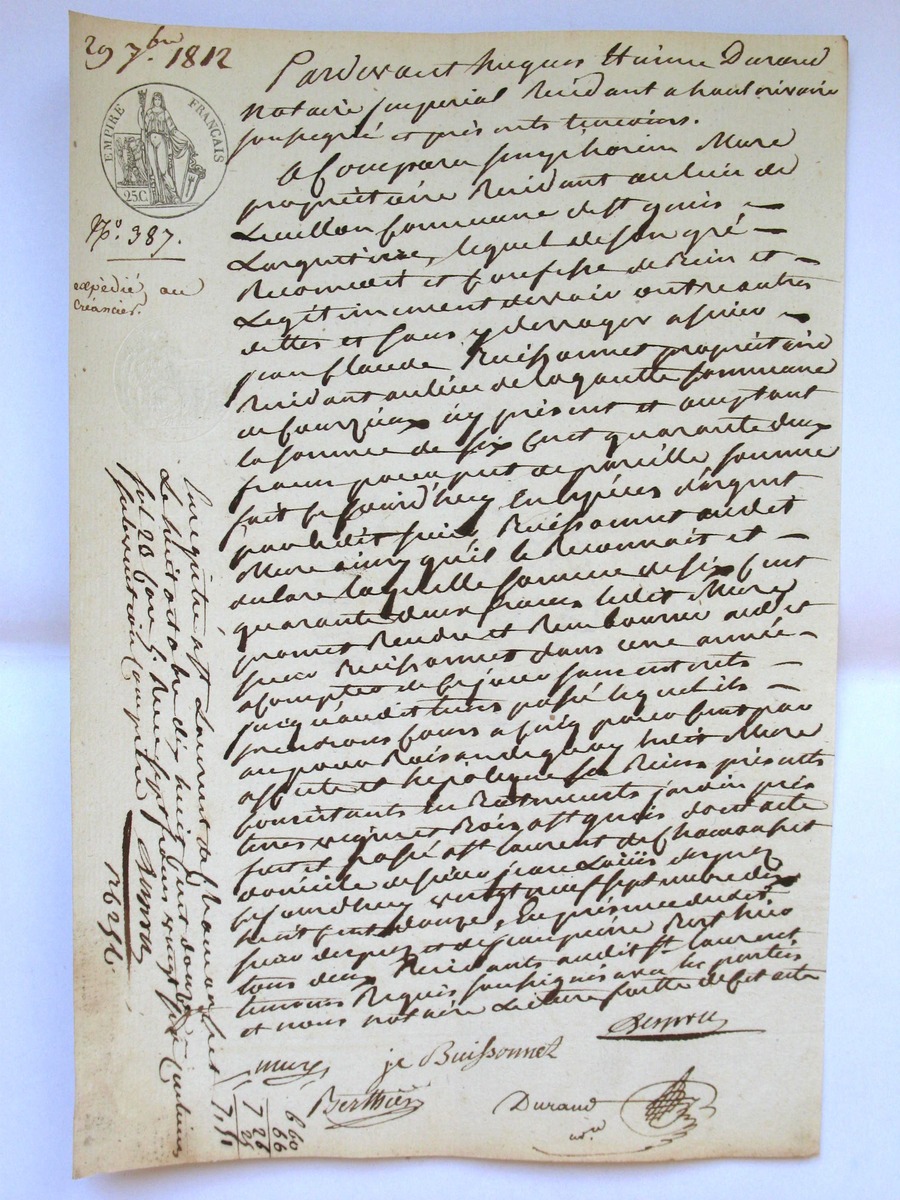 29 7.bre 1812
EMPIRE FRANÇAIS
25C.
N.º 387.
expédié au
Créancier.
Pardevant hugues Etienne Durand
Notaire Imperial Residant a haut rivoire
soussigné et présents temoins.
A Comparu simphorien Mure
propriétaire Residant au lieu de
commune de st genis
Largentiere, lequel de son gré
Reconnoit et Confesse de Bien et
Legitimement devoir outre autres
dettes et sans y derroger a sieur
jean Claude Buissonnet propriétaire
Residant au lieu de la goutte commune
de Courzieux icy présent et acceptant
la somme de six cent quarante deux
francs pour prêt de pareille somme
fait ce jourd'huy En Espèces d'argent
par ledit sieur Buissonnet audit
Mure ainsy qu'il le Reconnait et
declare laquelle somme de six cent
quarante deux francs ledit Mure
promet Rendre et Rembourser audit
sieur Buissonnet dans une année
a Compter de ce jour sans interets
jusqu'audit tems passé lequel ils
prendront Cours a cinq pour cent par
an pour Raison de quoy ledit Mure
affecte et hipotèque ses Biens présents
Consistants En Batiments jardin prés
terres vignes et Bois a st genis dont acte
fait et passé a st Laurent de Chamousset
domicile de sieur jean Louis desprez
ce jourd'huy vingt neuf septembre dix
huit cent douze, En présence dudit
sieur desprez et de sieur pierre Berthier
tous deux Residants audit st Laurent
temoins Requis soussignés avec les parties
et nous notaire Lecture faitte de cet acte
Mure je Buissonnet
Berthier Durand
no.re
Enregistré a st Laurent de Chamousset
Le huit octobre dix huit cent douze
fol 20 Reçu sept francs vingt six Centimes
subvention Comprise
6 60
66
7 26
25
7,51